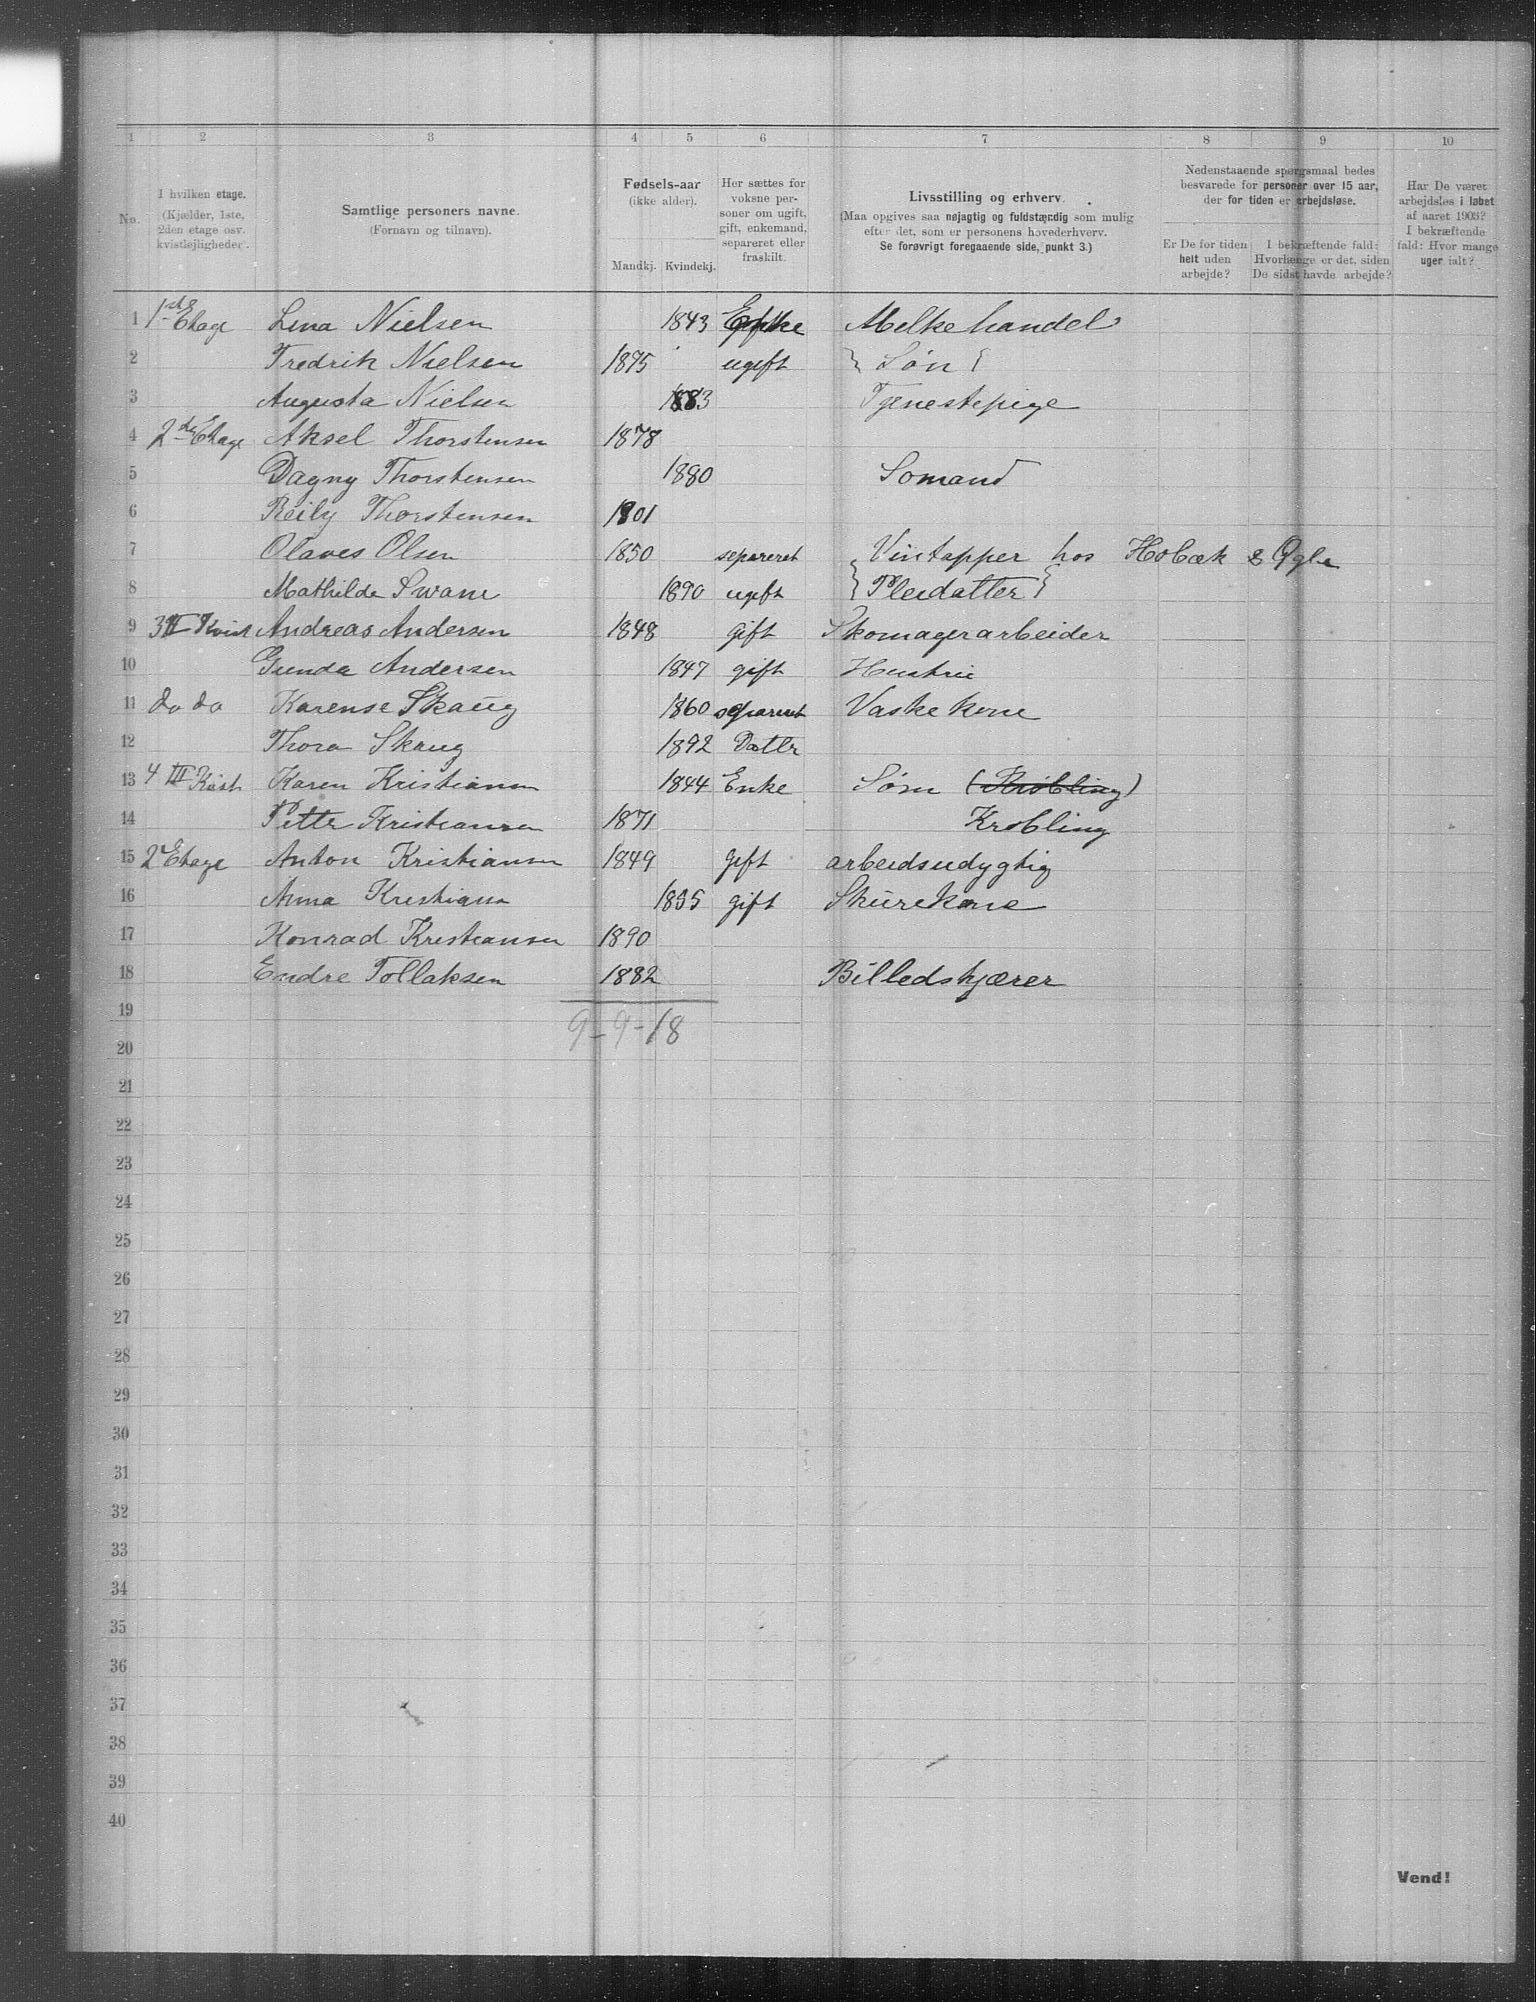 1 2 3 4 5 6 7 8 9 10
No.
I hvilken etage.
(Kjælder, 1ste,
2den etage osv.
kvistlejligheder.
Samtlige personers navne.
(Fornavn og tilnavn).
Fødsels-aar
(ikke alder).
Mandkj. Kvindekj.
Her sættes for
voksne per-
soner om ugift,
gift, enkemand,
separeret eller
fraskilt.
Livsstilling og erhverv.
(Maa opgives saa nøjagtig og fuldstændig som mulig
efter det, som er personens hovederhverv.
Se forøvrigt foregaaende side, punkt 3.)
Nedenstaaende spørgsmaal bedes
besvarede for personer over 15 aar,
der for tiden er arbejdsløse.
Er De for tiden
helt uden
arbejde?
I bekræftende fald:
Hvorlænge er det, siden
De sidst havde arbejde?
Har De været
arbejdsløs i løbet
af aaret 1903?
I bekræftende
fald: Hvor mange
uger ialt?
1 1ste Etage Lina Nielsen 1843 Enke Melkehandel
2 Fredrik Nielsen 1875 ugift } Søn {
3 Augusta Nielsen 1883 Tjenestepige
4 2de Etage Aksel Thorstensen 1878
5 Dagny Thorstensen 1880 Somand
6 Reily Thorstensen 1901
7 Olaves Olsen 1850 separeret Vintapper hos Hobæk &
8 Mathilde Swane 1890 ugift } Pleidatter {
9 3 II Kvist Andreas Andersen 1848 gift Skomagerarbeider
10 Gunda Andersen 1847 gift Hustrue
11 do do Karense Skaug 1860 separeret Vaskekone
12 Thora Skaug 1892 Datter
13 4 III Kvist Karen Kristiansen 1844 Enke Sønn (Krobling)
14 Petter Kristiansen 1871 Krobling
15 2 Etage Anton Kristiansen 1849 gift arbeidsudygtig
16 Anna Kristiansen 1855 gift Skurekone
17 Konrad Kristiansen 1890
18 Endre Tollaksen 1882 Billedskjærer
19
9-9-18
20
21
22
23
24
25
26
27
28
29
30
31
32
33
34
35
36
37
38
39
40
Vend!